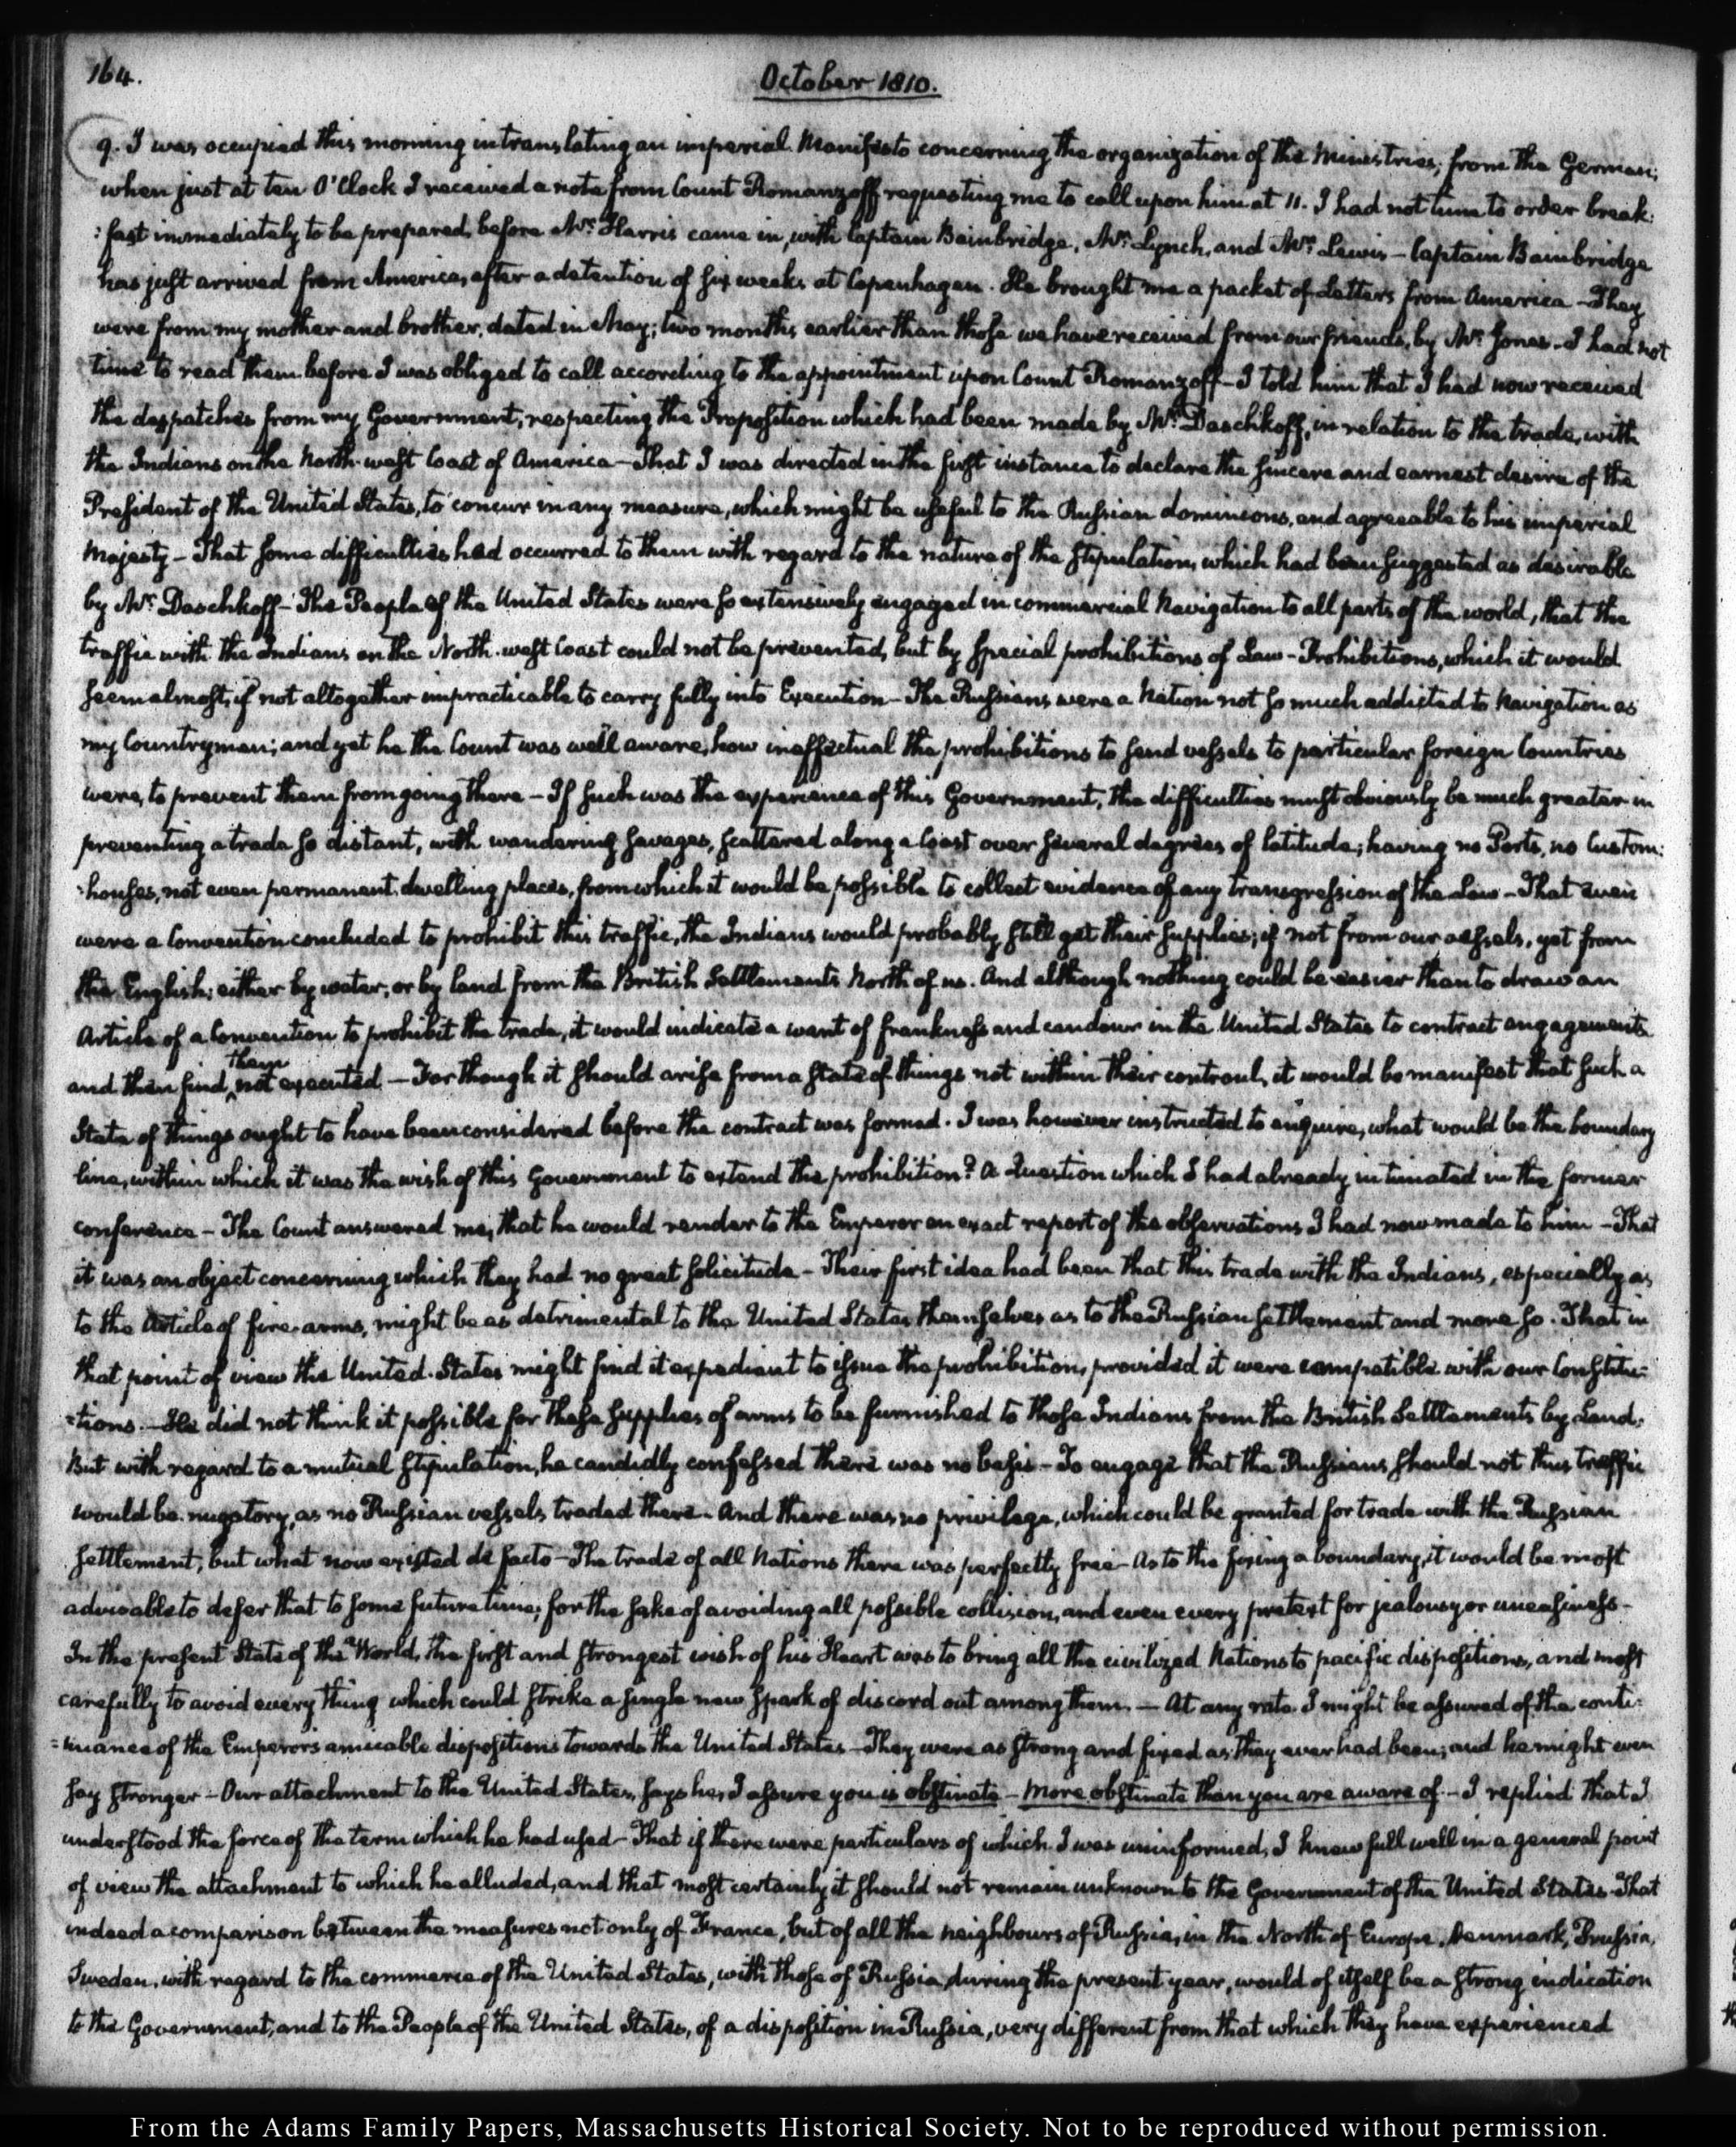 164.
October 1810.
9. I was occupied this morning in translating an imperial Manifesto concerning the organization of the Ministries; from the German;
when just at ten O'Clock I received a note from Count Romanzoff requesting me to call upon him at 11. I had not time to order break:
:fast immediately to be prepared, before Mr. Harris came in, with Captain Bainbridge, Mr. Lynch, and Mr. Lewis — Captain Bainbridge
has just arrived from America, after a detention of six weeks at Copenhagen. He brought me a packet of Letters from America — They
were from my mother and brother, dated in May; two months earlier than those we have received from our friends, by Mr. Jones. I had not
time to read them before I was obliged to call according to the appointment upon Count Romanzoff — I told him that I had now received
the despatches from my Government, respecting the Proposition which had been made by Mr. Daschkoff, in relation to the trade, with
the Indians on the North-west Coast of America — That I was directed in the first instance to declare the sincere and earnest desire of the
President of the United States, to concur in any measure, which might be useful to the Russian dominions, and agreeable to his imperial
Majesty — That some difficulties had occurred to them with regard to the nature of the stipulation, which had been suggested as desirable
by Mr. Daschkoff — The People of the United States were so extensively engaged in commercial Navigation to all parts of the world, that the
traffic with the Indians on the North-west Coast could not be prevented, but by special prohibitions of Law — Prohibitions, which it would
seem almost, if not altogether impracticable to carry fully into Execution — The Russians were a Nation not so much addicted to Navigation as
my Countrymen; and yet he the Count was well aware, how ineffectual the prohibitions to send vessels to particular foreign Countries
were, to prevent them from going there — If such was the experience of this Government, the difficulties must obviously be much greater in
preventing a trade so distant, with wandering savages, scattered along a Coast over several degrees of latitude; having no Ports, no Custom:
:houses, not even permanent dwelling places, from which it would be possible to collect evidence of any transgression of the Law — That even
were a Convention concluded to prohibit this traffic, the Indians would probably still get their supplies; if not from our vessels, yet from
the English; either by water, or by land from the British Settlements North of us. And although nothing could be easier than to draw an
Article of a Convention to prohibit the trade, it would indicate a want of frankness and candour in the United States to contract engagements
them
and then find not executed — For though it should arise from a state of things not within their controul, it would be manifest that such a
State of things ought to have been considered before the contract was formed. I was however instructed to enquire, what would be the boundary
line, within which it was the wish of this Government to extend the prohibition? A Question which I had already intimated in the former
conference — The Count answered me, that he would render to the Emperor an exact report of the observations I had now made to him — That
it was an object concerning which they had no great solicitude — Their first idea had been that this trade with the Indians, especially as
to the Article of fire-arms, might be as detrimental to the United States themselves as to the Russian settlement and more so. That in
that point of view the United States might find it expedient to issue the prohibition, provided it were compatible with our Constitu:
:tions. He did not think it possible for these supplies of arms to be furnished to those Indians from the British Settlements by Land.
But with regard to a mutual stipulation, he candidly confessed there was no basis — To engage that the Russians should not thus traffic
would be nugatory, as no Russian vessels traded there. And there was no privilege, which could be granted for trade with the Russian
settlement, but what now existed de facto — The trade of all Nations there was perfectly free — As to the fixing a boundary, it would be most
advisable to defer that to some future time; for the sake of avoiding all possible collision, and even every pretext for jealousy or uneasiness —
In the present State of the World, the first and strongest wish of his Heart was to bring all the civilized Nations to pacific dispositions, and most
carefully to avoid every thing which could strike a single new spark of discord out among them. — At any rate I might be assured of the conti:
:nuance of the Emperors amicable dispositions towards the United States — They were as strong and fixed as they ever had been; and he might even
say stronger — Our attachment to the United States, says he, I assure you is obstinate — more obstinate than you are aware of. — I replied that I
understood the force of the term which he had used — That if there were particulars of which I was uninformed, I knew full well in a general point
of view the attachment to which he alluded, and that most certainly it should not remain unknown to the Government of the United States. That
indeed a comparison between the measures not only of France, but of all the neighbours of Russia, in the North of Europe, Denmark, Prussia,
Sweden, with regard to the commerce of the United States, with those of Russia, during the present year, would of itself be a strong indication
to the Government, and to the People of the United States, of a disposition in Russia, very different from that which they have experienced
From the Adams Family Papers, Massachusetts Historical Society. Not to be reproduced without permission.